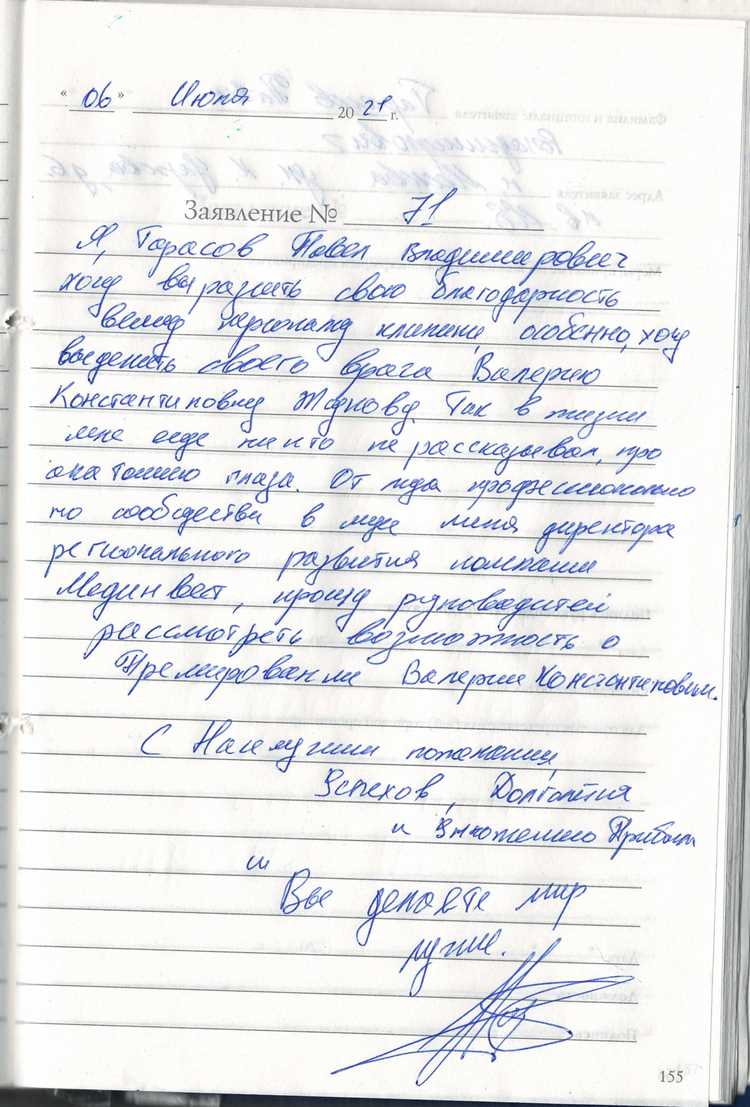 « 06 » Июня 20 21 г.
Заявление № 71
Я, Тарасов Павел Владимирович
хочу выразить свою благодарность
всему персоналу клиники, особенно, хочу
выделить своего врача Валерию
Константиновну Жданову. Так в жизни
мне еще никто не рассказывал, про
анатомию глаза. От лица профессионального
сообщества в лице меня директора
регионального развития компании
Мединвест, прошу руководителей
рассмотреть возможность о
Премировании Валерии Константиновны.
С Наилучшими пожеланиями,
Успехов, Долголетия
и Умножению Прибыли
и
Вы делаете мир
лучше.
155